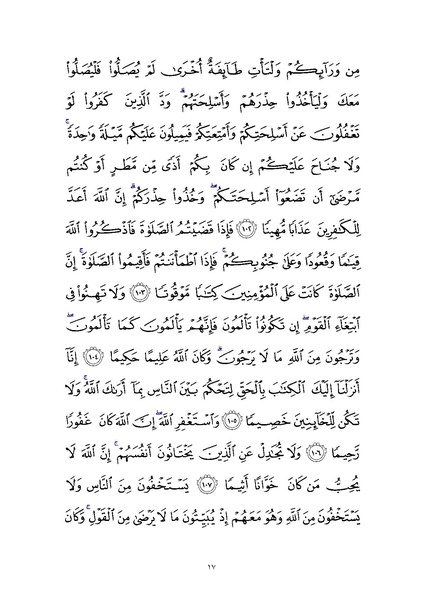 مِن وَرَآئِكُمۡ وَلۡتَأۡتِ طَآئِفَةٌ أُخۡرَىٰ لَمۡ يُصَلُّواْ فَلۡيُصَلُّواْ
مَعَكَ وَلۡيَأۡخُذُواْ حِذۡرَهُمۡ وَأَسۡلِحَتَهُمۡۗ وَدَّ ٱلَّذِينَ كَفَرُواْ لَوۡ
تَغۡفُلُونَ عَنۡ أَسۡلِحَتِكُمۡ وَأَمۡتِعَتِكُمۡ فَيَمِيلُونَ عَلَيۡكُم مَّيۡلَةٗ وَٰحِدَةٗۚ
وَلَا جُنَاحَ عَلَيۡكُمۡ إِن كَانَ بِكُمۡ أَذٗى مِّن مَّطَرٍ أَوۡ كُنتُم
مَّرۡضَىٰٓ أَن تَضَعُوٓاْ أَسۡلِحَتَكُمۡۖ وَخُذُواْ حِذۡرَكُمۡۗ إِنَّ ٱللَّهَ أَعَدَّ
لِلۡكَٰفِرِينَ عَذَابٗا مُّهِينٗا ١٠٢ فَإِذَا قَضَيۡتُمُ ٱلصَّلَوٰةَ فَٱذۡكُرُواْ ٱللَّهَ
قِيَٰمٗا وَقُعُودٗا وَعَلَىٰ جُنُوبِكُمۡۚ فَإِذَا ٱطۡمَأۡنَنتُمۡ فَأَقِيمُواْ ٱلصَّلَوٰةَۚ إِنَّ
ٱلصَّلَوٰةَ كَانَتۡ عَلَى ٱلۡمُؤۡمِنِينَ كِتَٰبٗا مَّوۡقُوتٗا ١٠٣ وَلَا تَهِنُواْ فِي
ٱبۡتِغَآءِ ٱلۡقَوۡمِۖ إِن تَكُونُواْ تَأۡلَمُونَ فَإِنَّهُمۡ يَأۡلَمُونَ كَمَا تَأۡلَمُونَۖ
وَتَرۡجُونَ مِنَ ٱللَّهِ مَا لَا يَرۡجُونَۗ وَكَانَ ٱللَّهُ عَلِيمًا حَكِيمًا ١٠٤ إِنَّآ
أَنزَلۡنَآ إِلَيۡكَ ٱلۡكِتَٰبَ بِٱلۡحَقِّ لِتَحۡكُمَ بَيۡنَ ٱلنَّاسِ بِمَآ أَرَىٰكَ ٱللَّهُۚ وَلَا
تَكُن لِّلۡخَآئِنِينَ خَصِيمٗا ١٠٥ وَٱسۡتَغۡفِرِ ٱللَّهَۖ إِنَّ ٱللَّهَ كَانَ غَفُورٗا
رَّحِيمٗا ١٠٦ وَلَا تُجَٰدِلۡ عَنِ ٱلَّذِينَ يَخۡتَانُونَ أَنفُسَهُمۡۚ إِنَّ ٱللَّهَ لَا
يُحِبُّ مَن كَانَ خَوَّانًا أَثِيمٗا ١٠٧ يَسۡتَخۡفُونَ مِنَ ٱلنَّاسِ وَلَا
يَسۡتَخۡفُونَ مِنَ ٱللَّهِ وَهُوَ مَعَهُمۡ إِذۡ يُبَيِّتُونَ مَا لَا يَرۡضَىٰ مِنَ ٱلۡقَوۡلِۚ وَكَانَ
١٧